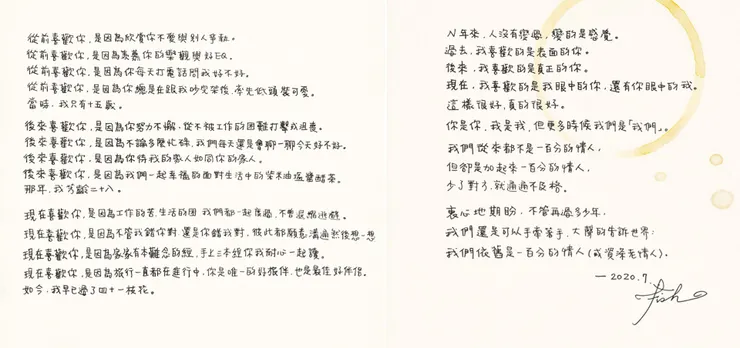 從前喜歡你，是因為欣賞你不愛與別人爭執。
從前喜歡你，是因為羨慕你的樂觀與好EQ。
從前喜歡你，是因為你每天打電話問我好不好。
從前喜歡你，是因為你總是在跟我吵完架後，率先低頭裝可愛。
當時，我只有十五歲。
後來喜歡你，是因為你努力不懈，從不被工作的困難打擊或退卻。
後來喜歡你，是因為不論多麼忙碌，我們每天還是會聊一聊今天好不好。
後來喜歡你，是因為你待我的家人如同你的家人。
後來喜歡你，是因為我們一起幸福的面對生活中的柴米油鹽醬醋茶。
那年，我芳齡二十八。
現在喜歡你，是因為工作的苦、生活的困 我們都一起度過，不曾退縮逃避。
現在喜歡你，是因為不管我錯你對，還是你錯我對，彼此都願意溝通然後想一想
現在喜歡你，是因為家家有本難念的經，手上三本經你我耐心一起讀。
現在喜歡你，是因為旅行一直都在進行中，你是唯一的好旅伴，也是最佳好伴侶。
如今，我早已過了四十一枝花。
N年來，人沒有變過，變的是感覺。
過去，我喜歡的是表面的你。
後來，我喜歡的是真正的你。
現在，我喜歡的是我眼中的你，還有你眼中的我。
這樣很好，真的很好。
你是你，我是我，但更多時候我們是「我們」。
我們從來都不是一百分的情人，
但卻是加起來一百分的情人，
少了對方，就通通不及格。
衷心地期盼，不管再過多少年，
我們還是可以手牽著手，大聲的告訴世界：
我們依舊是一百分的情人(或資深老情人)。
—2020.7.
Fish